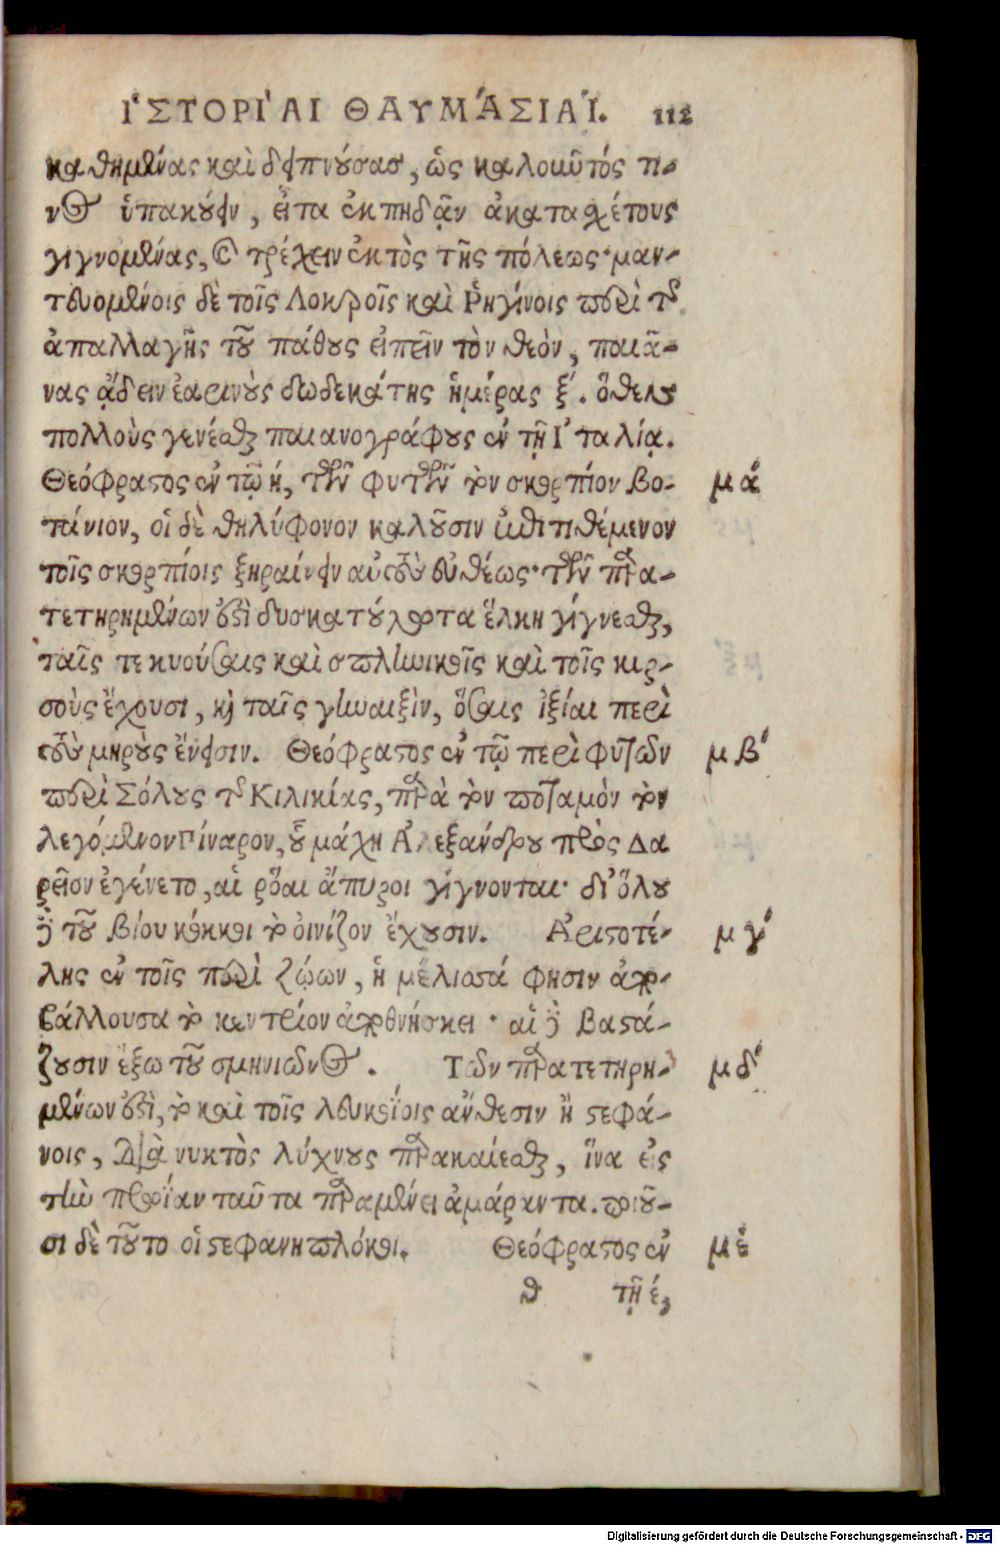 ἹΣΤΟΡΊΑΙ ΘΑΥΜΆΣΙΑΙ. 112
καθημένας καὶ δειπνούσας, ὡς καλοῦντός τι-
νος ὑπακούειν, εἶτα ἐκπηδᾶν ἀκατασχέτους
γιγνομένας, καὶ τρέχειν ἐκτὸς τῆς πόλεως· μαν-
τευομένοις δὲ τοῖς Λοκροῖς καὶ Ῥηγίνοις περὶ τῆς
ἀπαλλαγῆς τοῦ πάθους εἰπεῖν τὸν θεὸν, παιᾶ-
νας ᾄδειν ἐαρινοὺς δωδεκάτης ἡμέρας ξ΄. ὅθεν
πολλοὺς γενέσθαι παιανογράφους ἐν τῇ Ἰταλίᾳ.
Θεόφραστος ἐν τῷ ή, τῶν φυτῶν τὸν σκορπίον βο- μά
τάνιον, οἱ δὲ θηλύφονον καλοῦσιν ἐπιτιθέμενον
τοῖς σκορπίοις ξηραίνειν αὐτοὺς εὐθέως· τῶν παρα-
τετηρημένων ἐστὶ δυσκατούλωτα ἕλκη γίγνεσθαι,
ταῖς τε κυούσαις καὶ σπληνικοῖς καὶ τοῖς κιρ-
σοὺς ἔχουσι, καὶ ταῖς γυναιξὶν, ὅσαις ἰξίαι περὶ
τοὺς μηροὺς ἔνεισιν. Θεόφραστος ἐν τῷ περὶ φυτῶν μβ΄
περὶ Σόλους τῆς Κιλικίας, παρὰ τὸν ποταμὸν τὸν
λεγόμενον Πίναρον, οὗ μάχη Ἀλεξάνδρου πρὸς Δα
ρεῖον ἐγένετο, αἱ ρόαι ἄπυροι γίγνονται· δι' ὅλου
δὲ τοῦ βίου κόκκοι τὸ οἰνίζον ἔχουσιν. Ἀριστοτέ- μγ΄
λης ἐν τοῖς περὶ ζῴων, ἡ μέλισσά φησιν ἀπο-
βάλλουσα τὸ κεντρίον ἀποθνήσκει· αἱ δὲ βαστά-
ζουσιν ἔξω τοῦ σμηνιῶνος. Τῶν παρατετηρη- μδ΄
μένων ἐστὶ, τὸ καὶ τοῖς λευκοΐοις ἄνθεσιν ἢ στεφά-
νοις, διὰ νυκτὸς λύχνους παρακαίεσθαι, ἵνα εἰς
τὴν πρωΐαν ταῦτα παραμένει ἀμάραντα. ποιοῦ-
σι δὲ τοῦτο οἱ στεφανηπλόκοι. Θεόφραστος ἐν μέ
θ τῇ έ,
Digitalisierung gefördert durch die Deutsche Forschungsgemeinschaft - DFG